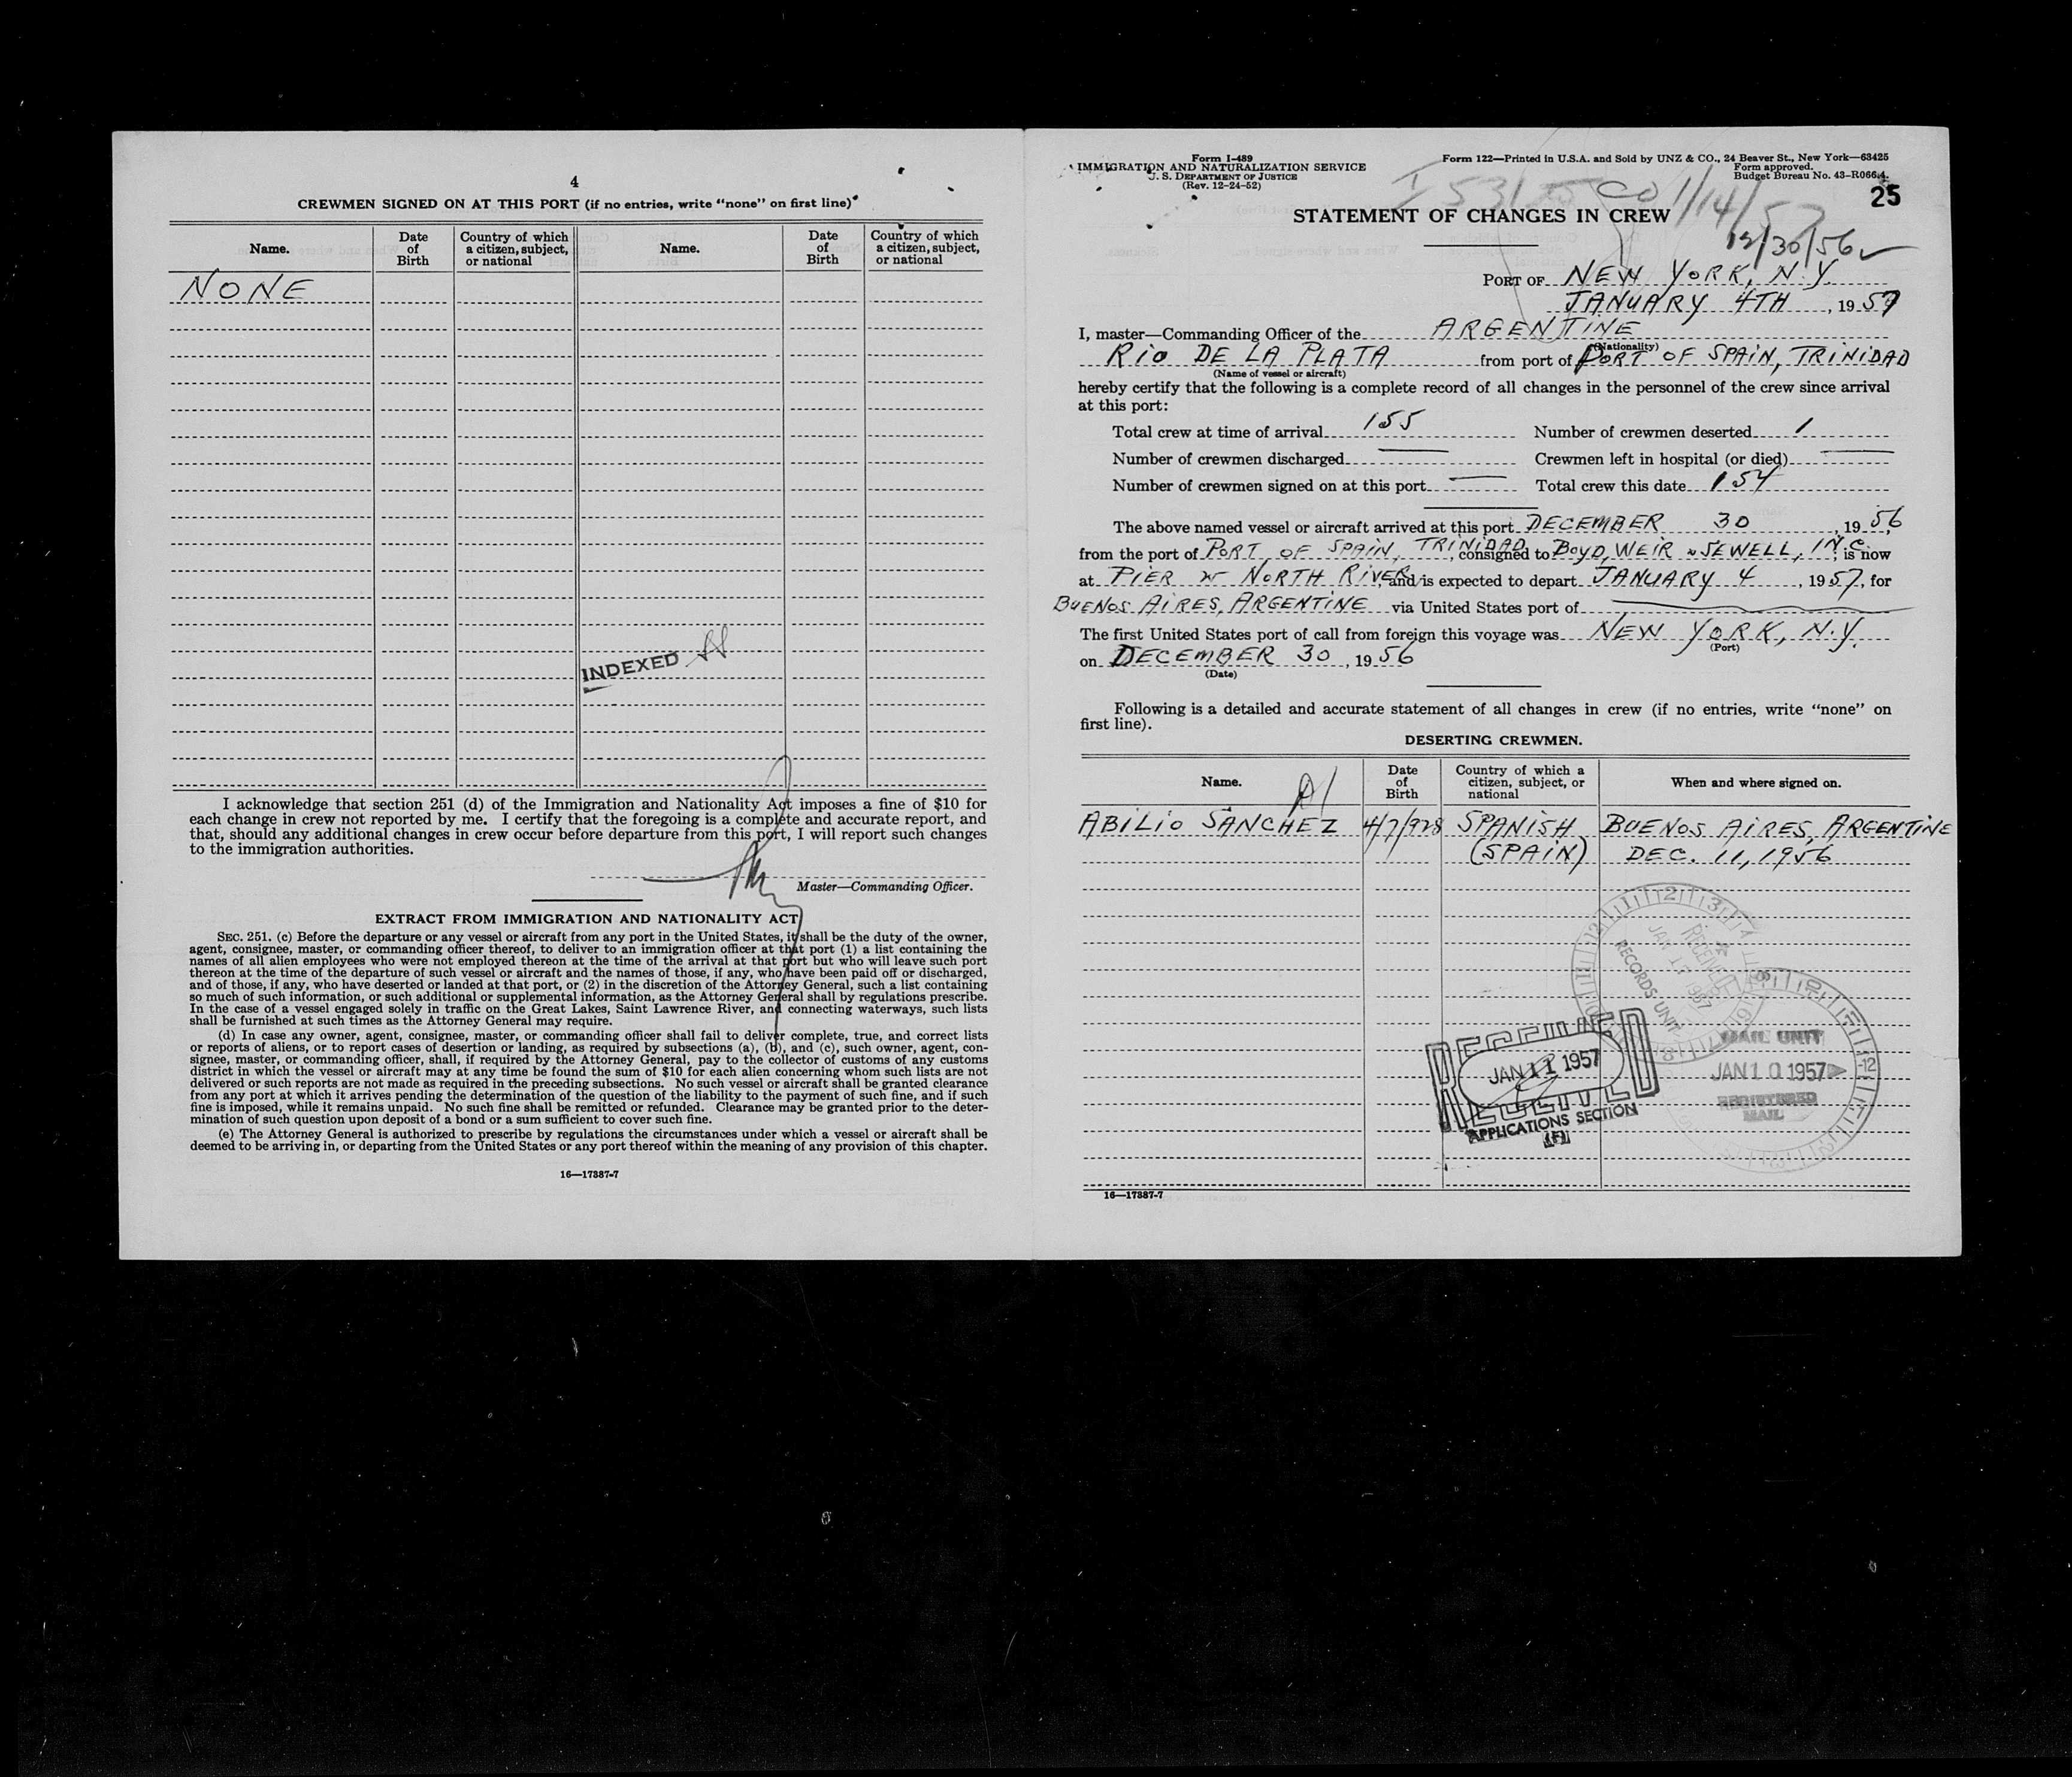 4
CREWMEN SIGNED ON AT THIS PORT (if no entries, write "none" on first line)
Name. Date of Birth Country of which a citizen, subject, or national Name. Date of Birth Country of which a citizen, subject, or national
NONE
INDEXED
I acknowledge that section 251 (d) of the Immigration and Nationality Act imposes a fine of $10 for
each change in crew not reported by me. I certify that the foregoing is a complete and accurate report, and
that, should any additional changes in crew occur before departure from this port, I will report such changes
to the immigration authorities.
Master—Commanding Officer.
EXTRACT FROM IMMIGRATION AND NATIONALITY ACT
SEC. 251. (c) Before the departure or any vessel or aircraft from any port in the United States, it shall be the duty of the owner,
agent, consignee, master, or commanding officer thereof, to deliver to an immigration officer at that port (1) a list containing the
names of all alien employees who were not employed thereon at the time of the arrival at that port but who will leave such port
thereon at the time of the departure of such vessel or aircraft and the names of those, if any, who have been paid off or discharged,
and of those, if any, who have deserted or landed at that port, or (2) in the discretion of the Attorney General, such a list containing
so much of such information, or such additional or supplemental information, as the Attorney General shall by regulations prescribe.
In the case of a vessel engaged solely in traffic on the Great Lakes, Saint Lawrence River, and connecting waterways, such lists
shall be furnished at such times as the Attorney General may require.
(d) In case any owner, agent, consignee, master, or commanding officer shall fail to deliver complete, true, and correct lists
or reports of aliens, or to report cases of desertion or landing, as required by subsections (a), (b), and (c), such owner, agent, con-
signee, master, or commanding officer, shall, if required by the Attorney General, pay to the collector of customs of any customs
district in which the vessel or aircraft may at any time be found the sum of $10 for each alien concerning whom such lists are not
delivered or such reports are not made as required in the preceding subsections. No such vessel or aircraft shall be granted clearance
from any port at which it arrives pending the determination of the question of the liability to the payment of such fine, and if such
fine is imposed, while it remains unpaid. No such fine shall be remitted or refunded. Clearance may be granted prior to the deter-
mination of such question upon deposit of a bond or a sum sufficient to cover such fine.
(e) The Attorney General is authorized to prescribe by regulations the circumstances under which a vessel or aircraft shall be
deemed to be arriving in, or departing from the United States or any port thereof within the meaning of any provision of this chapter.
16—17887-7
Form I-489
IMMIGRATION AND NATURALIZATION SERVICE
U. S. DEPARTMENT OF JUSTICE
(Rev. 12-24-52)
Form 122—Printed in U.S.A. and Sold by UNZ & CO., 24 Beaver St., New York—63425
Form approved.
Budget Bureau No. 43-R066.4.
25
1/14/57
STATEMENT OF CHANGES IN CREW
12/30/56
PORT OF NEW YORK, N.Y.
JANUARY 4TH, 1957
I, master—Commanding Officer of the ARGENTINE
(Nationality)
RIO DE LA PLATA from port of PORT OF SPAIN, TRINIDAD
(Name of vessel or aircraft)
hereby certify that the following is a complete record of all changes in the personnel of the crew since arrival
at this port:
Total crew at time of arrival 155 Number of crewmen deserted 1
Number of crewmen discharged — Crewmen left in hospital (or died) —
Number of crewmen signed on at this port — Total crew this date 154
The above named vessel or aircraft arrived at this port DECEMBER 30, 1956
from the port of PORT OF SPAIN, TRINIDAD, consigned to BOYD, WEIR & SEWELL, INC., is now
at PIER NORTH RIVER, and is expected to depart JANUARY 4, 1957, for
BUENOS AIRES, ARGENTINE via United States port of
The first United States port of call from foreign this voyage was NEW YORK, N.Y.
(Port)
on DECEMBER 30, 1956
(Date)
Following is a detailed and accurate statement of all changes in crew (if no entries, write "none" on
first line).
DESERTING CREWMEN.
Name. Date of Birth Country of which a citizen, subject, or national When and where signed on.
ABILIO SANCHEZ 4/7/928 SPANISH BUENOS AIRES, ARGENTINE
(SPAIN) DEC. 11, 1956
RECEIVED
JAN 17 1957
RECORDS UNIT
MAIL UNIT
JAN 10 1957
REGISTERED
MAIL
RECEIVED
JAN 11 1957
APPLICATIONS SECTION
16—17887-7